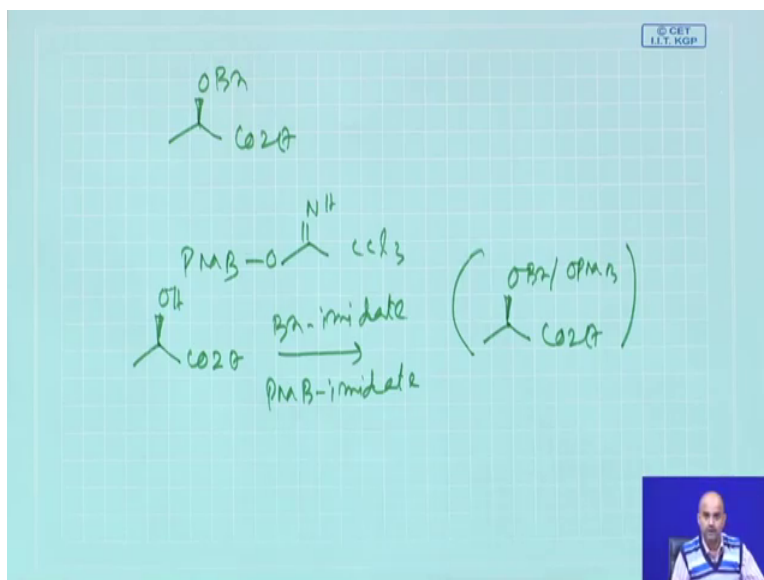 © CET
I.I.T. KGP
OBn
CO2Et
NH
PMB-O CCl3
OH
Bn-imidate
CO2Et
PMB-imidate
OBn/OPMB
CO2Et